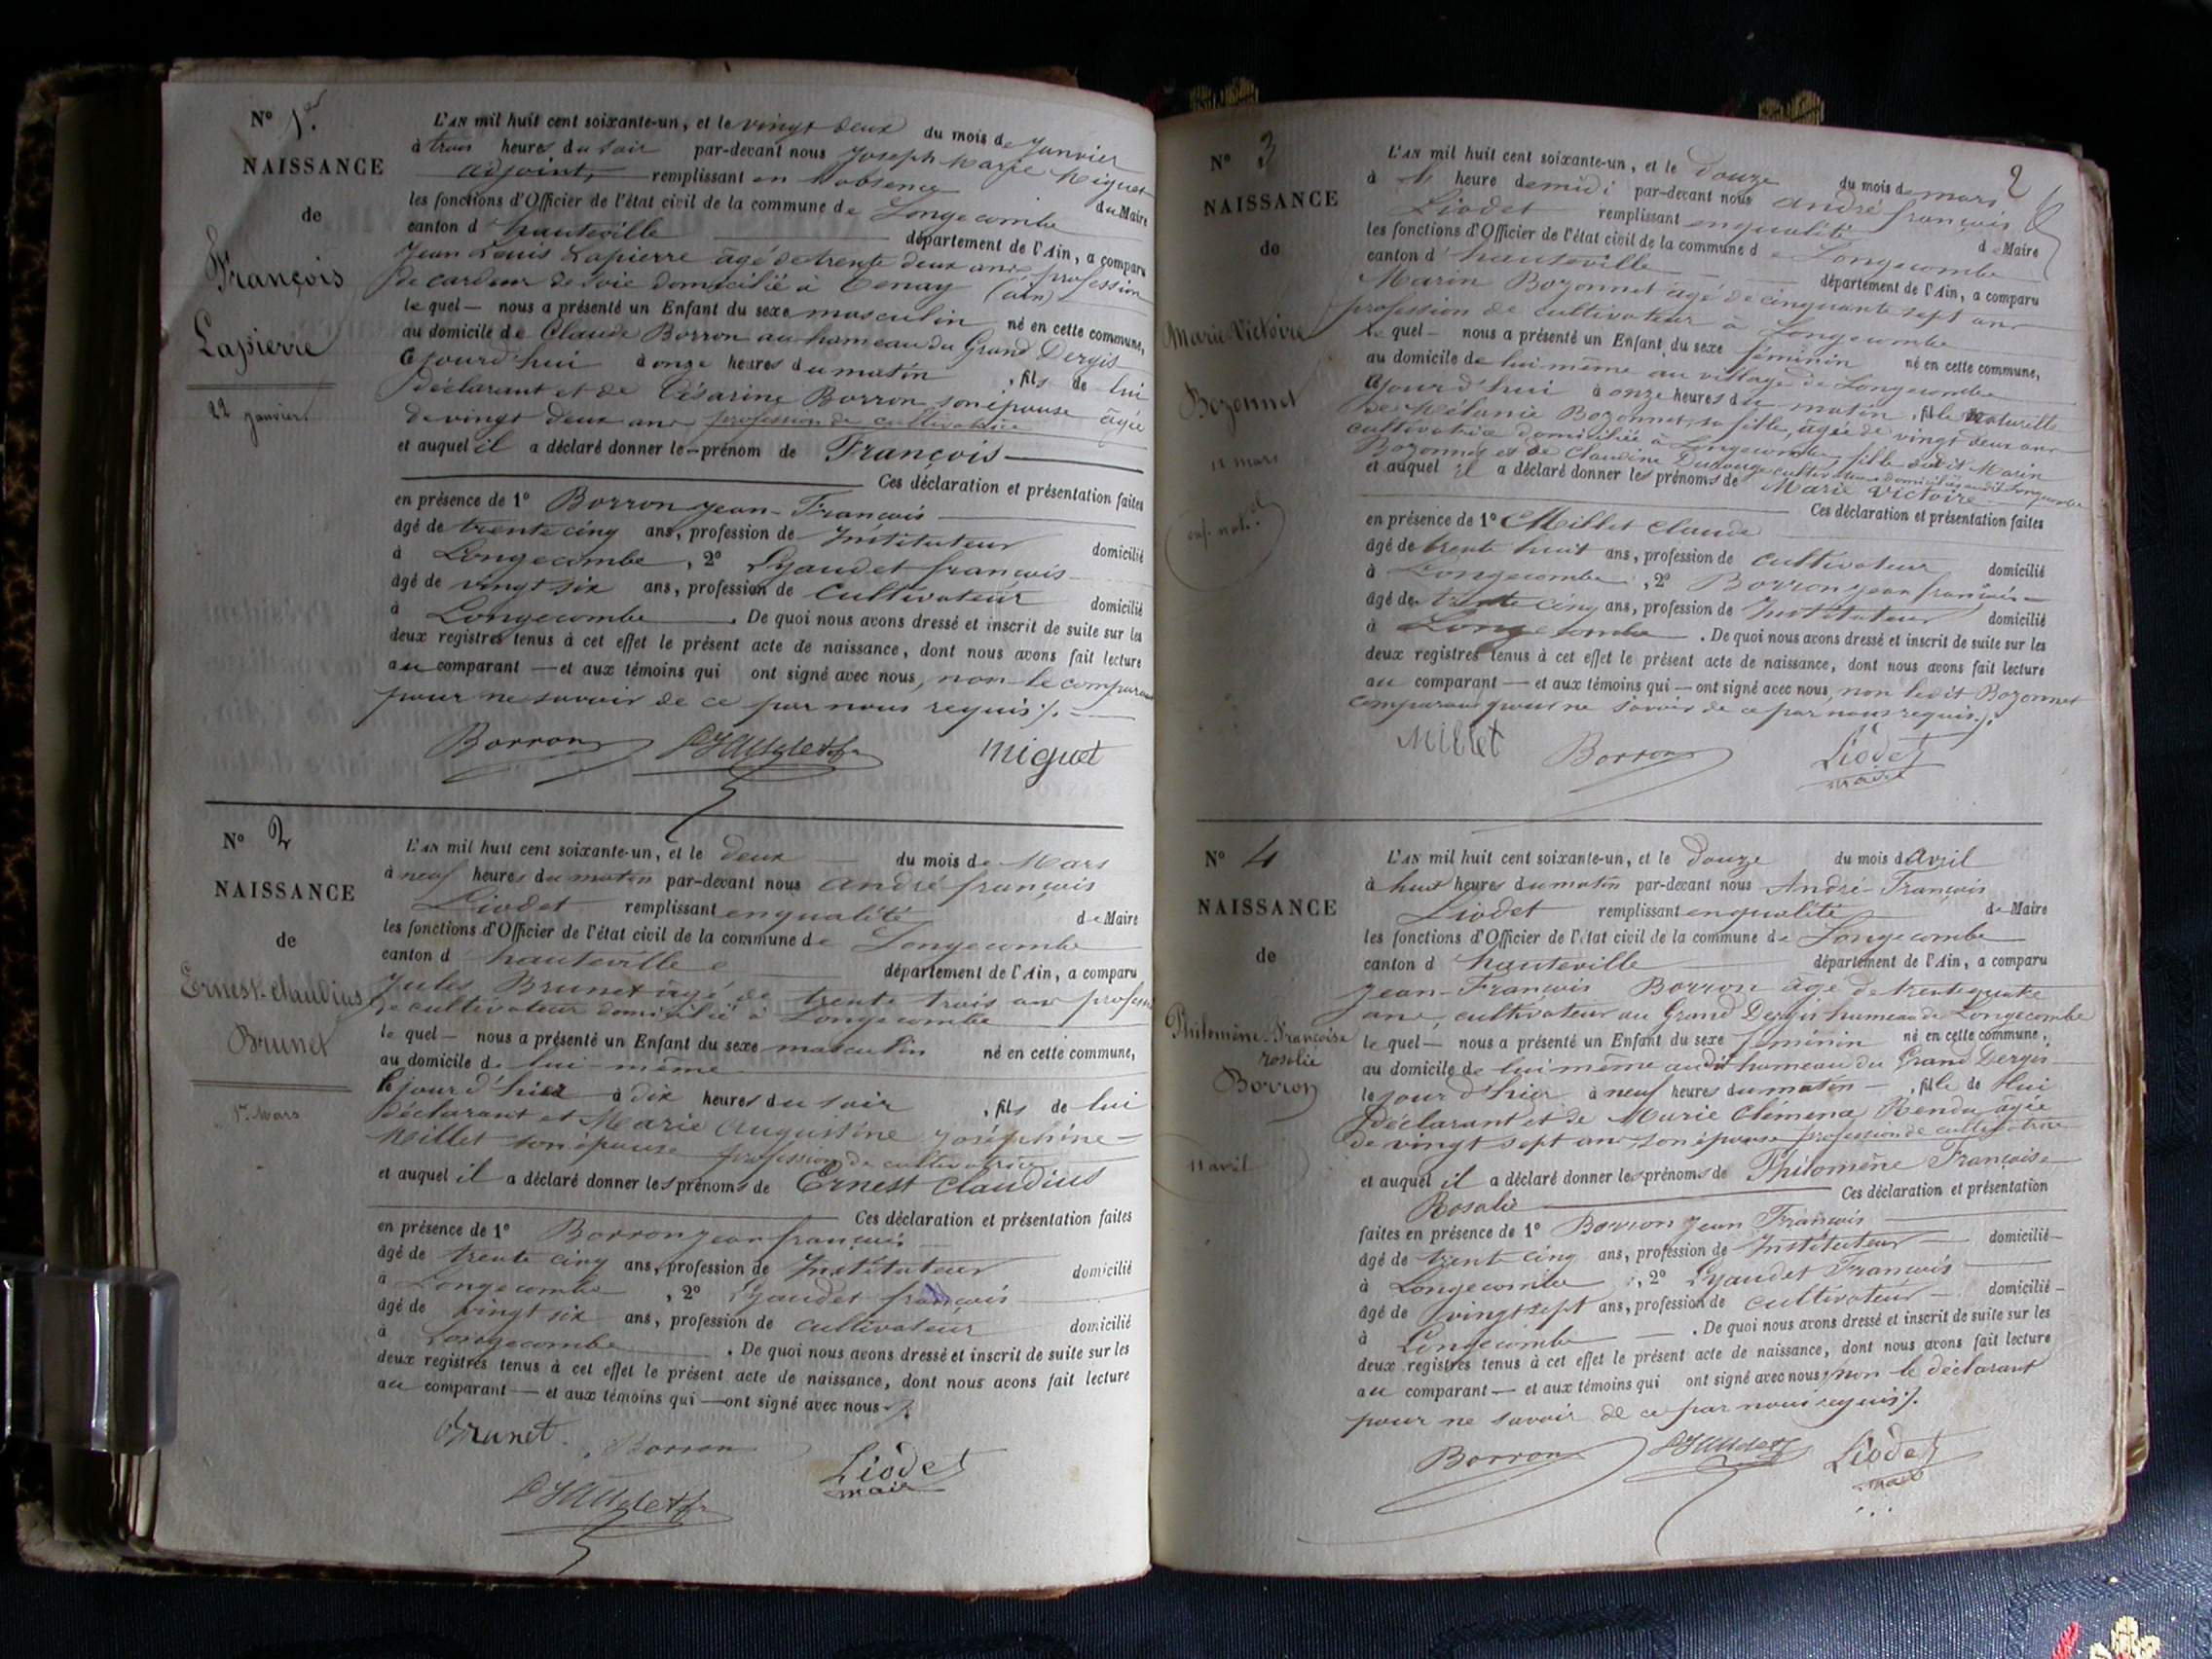 N° 1er
NAISSANCE
de
François
Lapierre
22 janvier
L'AN mil huit cent soixante-un, et le vingt deux du mois de Janvier
à trois heures du soir par-devant nous Joseph Marie Miguet
adjoint, remplissant en l'absence du Maire
les fonctions d'Officier de l'état civil de la commune de Longecombe
canton d'hauteville département de l'Ain, a comparu
Jean Louis Lapierre âgé de trente deux ans, profession
de cardeur de soie domicilié à Tenay (ain)
le quel — nous a présenté un Enfant du sexe masculin né en cette commune,
au domicile de Claude Borron au hameau du Grand Dergis
Cejourd'hui à onze heures du matin, fils de lui
déclarant et de Césarine Borron son épouse âgée
de vingt deux ans profession de cultivatrice
et auquel il a déclaré donner le prénom de François
Ces déclaration et présentation faites
en présence de 1° Borron Jean-François
âgé de trente cinq ans, profession de Instituteur domicilié
à Longecombe, 2° Lyaudet françois
âgé de vingt six ans, profession de Cultivateur domicilié
à Longecombe. De quoi nous avons dressé et inscrit de suite sur les
deux registres tenus à cet effet le présent acte de naissance, dont nous avons fait lecture
au comparant — et aux témoins qui ont signé avec nous, non le comparant
pour ne savoir de ce par nous requis ./.
Borron Lyaudet fr miguet
N° 2
NAISSANCE
de
Ernest-Claudius
Brunet
1er Mars
L'AN mil huit cent soixante-un, et le deux du mois de Mars
à neuf heures du matin par-devant nous André françois
Liodet remplissant en qualité de Maire
les fonctions d'Officier de l'état civil de la commune de Longecombe
canton d hauteville département de l'Ain, a comparu
Jules Brunet âgé de trente trois ans profession
de cultivateur domicilié à Longecombe
le quel — nous a présenté un Enfant du sexe masculin né en cette commune,
au domicile de lui-même
le jour d'hier à dix heures du soir, fils de lui
déclarant et Marie Augustine Joséphine
Millet son épouse profession de cultivatrice
et auquel il a déclaré donner les prénoms de Ernest Claudius
Ces déclaration et présentation faites
en présence de 1° Borron jean françois
âgé de trente cinq ans, profession de Instituteur domicilié
à Longecombe, 2° Lyaudet françois
âgé de vingt six ans, profession de cultivateur domicilié
à Longecombe. De quoi nous avons dressé et inscrit de suite sur les
deux registres tenus à cet effet le présent acte de naissance, dont nous avons fait lecture
au comparant — et aux témoins qui — ont signé avec nous ./.
Brunet Borron Liodet
maire
Lyaudet fr
2
N° 3
NAISSANCE
de
Marie Victoire
Bozonnet
12 mars
enf. nat.el
L'AN mil huit cent soixante-un, et le douze du mois de mars
à heure de midi par-devant nous André françois
Liodet remplissant en qualité de Maire
les fonctions d'Officier de l'état civil de la commune de Longecombe
canton d'hauteville département de l'Ain, a comparu
Marin Bozonnet âgé de cinquante sept ans
profession de cultivateur à Longecombe
le quel — nous a présenté un Enfant du sexe féminin né en cette commune,
au domicile de lui même au village de Longecombe
Cejourd'hui à onze heures du matin, fille naturelle
de Mélanie Bozonnet, sa fille, âgée de vingt deux ans
cultivatrice domiciliée à Longecombe, fille dudit Marin
Bozonnet et de Claudine cultivateurs domiciliés audit Longecombe
et auquel il a déclaré donner les prénoms de Marie Victoire
Ces déclaration et présentation faites
en présence de 1° Millet Claude
âgé de trente huit ans, profession de cultivateur domicilié
à Longecombe, 2° Borron jean françois
âgé de trente cinq ans, profession de Instituteur domicilié
à Longecombe. De quoi nous avons dressé et inscrit de suite sur les
deux registres tenus à cet effet le présent acte de naissance, dont nous avons fait lecture
au comparant — et aux témoins qui — ont signé avec nous, non ledit Bozonnet
comparant pour ne savoir de ce par nous requis ./.
Millet Borron Liodet
maire
N° 4
NAISSANCE
de
Philomène-Françoise
rosalie
Borron
11 avril
L'AN mil huit cent soixante-un, et le douze du mois d'Avril
à huit heures du matin par-devant nous André-François
Liodet remplissant en qualité de Maire
les fonctions d'Officier de l'état civil de la commune de Longecombe
canton d'hauteville département de l'Ain, a comparu
Jean-François Borron âgé de trente quatre
ans, cultivateur au Grand Dergis hameau de Longecombe
le quel — nous a présenté un Enfant du sexe féminin né en cette commune,
au domicile de lui même audit hameau du Grand Dergis
le jour d'hier à neuf heures du matin —, fille de lui
déclarant et de Marie Clémence Rendu âgée
de vingt sept ans, son épouse profession de cultivatrice
et auquel il a déclaré donner les prénoms de Philomène Françoise
Rosalie Ces déclaration et présentation
faites en présence de 1° Borron Jean François
âgé de trente cinq ans, profession de Instituteur domicilié
à Longecombe, 2° Lyaudet François
âgé de vingt sept ans, profession de cultivateur domicilié
à Longecombe. De quoi nous avons dressé et inscrit de suite sur les
deux registres tenus à cet effet le présent acte de naissance, dont nous avons fait lecture
au comparant — et aux témoins qui ont signé avec nous, non le déclarant
pour ne savoir de ce par nous requis ./.
Borron Lyaudet f Liodet
maire